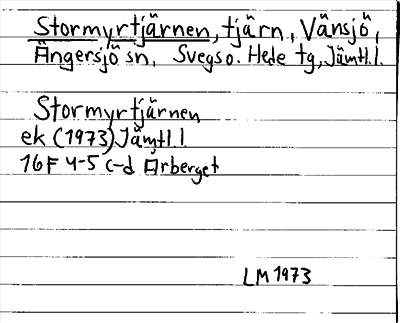 Stormyrtjärnen, tjärn, Vänsjö,
Ängersjö sn, Svegs o. Hede tg, Jämtl. l.
Stormyrtjärnen
ek (1973) Jämtl. l.
16F 4-5 c-d Arberget
LM 1973